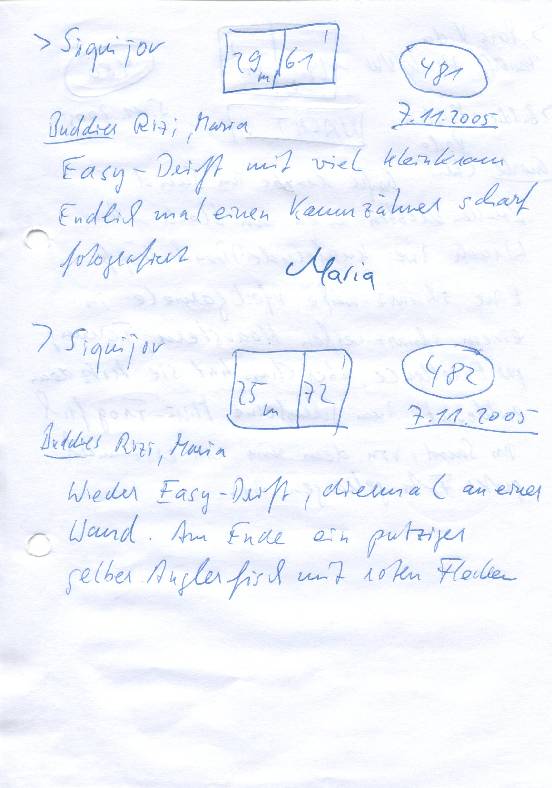 > Siquijor
29 m 61' 481
7.11.2005
Buddies Rizi, Maria
Easy-Drift mit viel Kleinkram
Endlich mal einen Kammzähner scharf
fotografiert
Maria
> Siquijor
25 m 72' 482
7.11.2005
Buddies Rizi, Maria
Wieder Easy-Drift, diesmal an einer
Wand. Am Ende ein putziger
gelber Anglerfisch mit roten Flecken